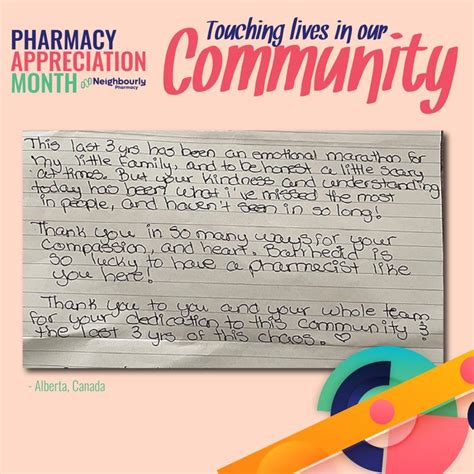 PHARMACY
APPRECIATION
MONTH Neighbourly
Pharmacy
Touching lives in our
Community
This last 3 yrs has been an emotional marathon for
my little family. and to be honest a little scary
at times. But your kindness and understanding
today has been what i've missed the most
in people, and haven't seen in so long!
Thank you in so many ways for your
compassion, and heart. Bonnheid is
so lucky to have a pharmacist like
you here!
Thank you to you and your whole team
for your dedication to this community &
the last 3 yrs of this chaos. ♡
- Alberta, Canada